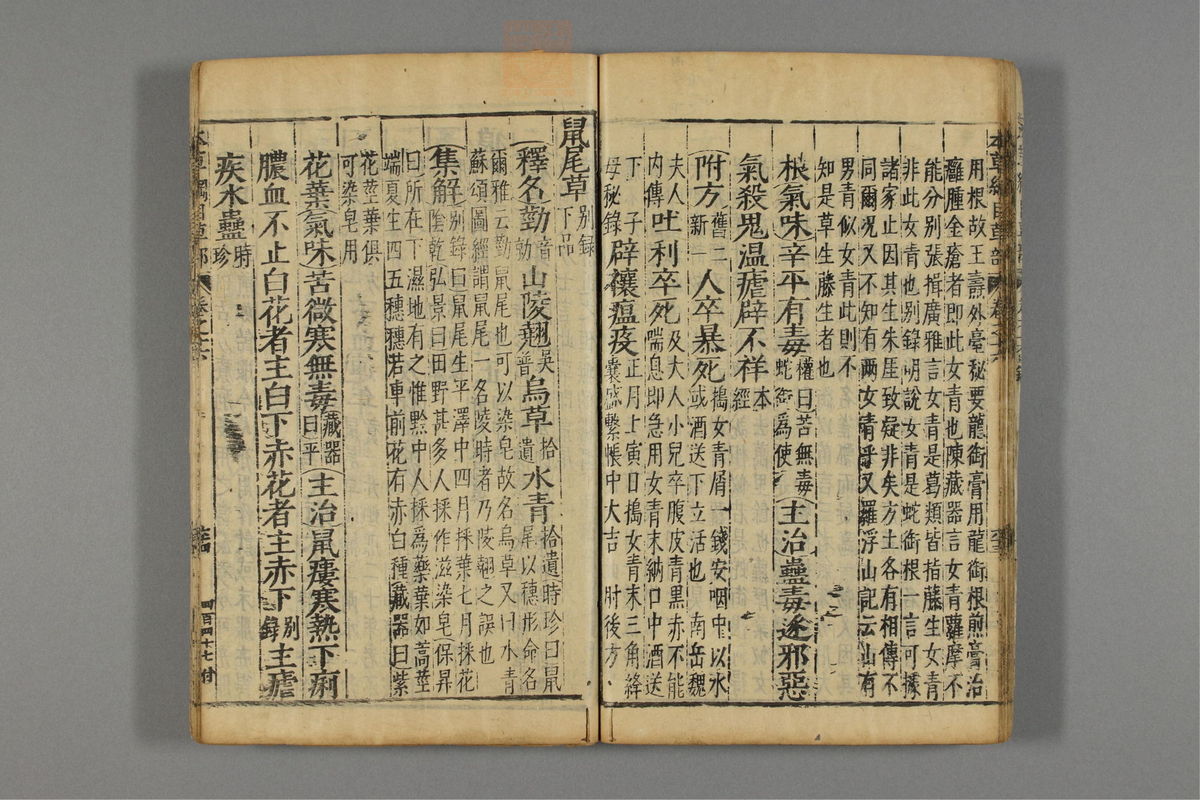 本草綱目草部 卷之十六
用根故王燾外臺秘要龍銜膏用龍銜根煎膏治
癰腫金瘡者即此女青也陳藏器言女青蘿摩不
能分别張揖廣雅言女青是葛類皆指藤生女青
非此女青也别錄明說女青是蛇銜根一言可據
諸家止因其生朱崖致疑非矣方土各有相傳不
同爾况又不知有兩女青乎又羅浮山記云山有
男青似女青此則不
知是草生藤生者也
根氣味辛平有毒權曰苦無毒蛇銜爲使主治蠱毒逐邪惡
氣殺鬼温瘧辟不祥本經
附方舊二新一人卒暴死搗女青屑一錢安咽中以水或酒送下立活也南岳魏
夫人内傳吐利卒死及大人小兒卒腹皮青黑赤不能喘息即急用女青末納口中酒送
下子母秘錄辟禳瘟疫正月上寅日搗女青末三角絳囊盛繫帳中大吉肘後方
鼠尾草别錄下品
釋名葝音勍山陵翹吳普烏草拾遺水青拾遺時珍曰鼠尾以穗形命名
爾雅云葝鼠尾也可以染皂故名烏草又曰水青
蘇頌圖經謂鼠尾一名陵時者乃陵翹之誤也
集解别錄曰鼠尾生平澤中四月采葉七月采花陰乾弘景曰田野甚多人採作滋染皂保昇
曰所在下濕地有之惟黔中人採爲藥葉如蒿莖
端夏生四五穗穗若車前花有赤白二種藏器曰紫
花莖葉俱
可染皂用
花葉氣味苦微寒無毒藏器曰平主治鼠瘻寒熱下痢
膿血不止白花者主白下赤花者主赤下别錄主瘧
疾水蠱時珍
本草綱目草部 卷之十六
四百四十七 付